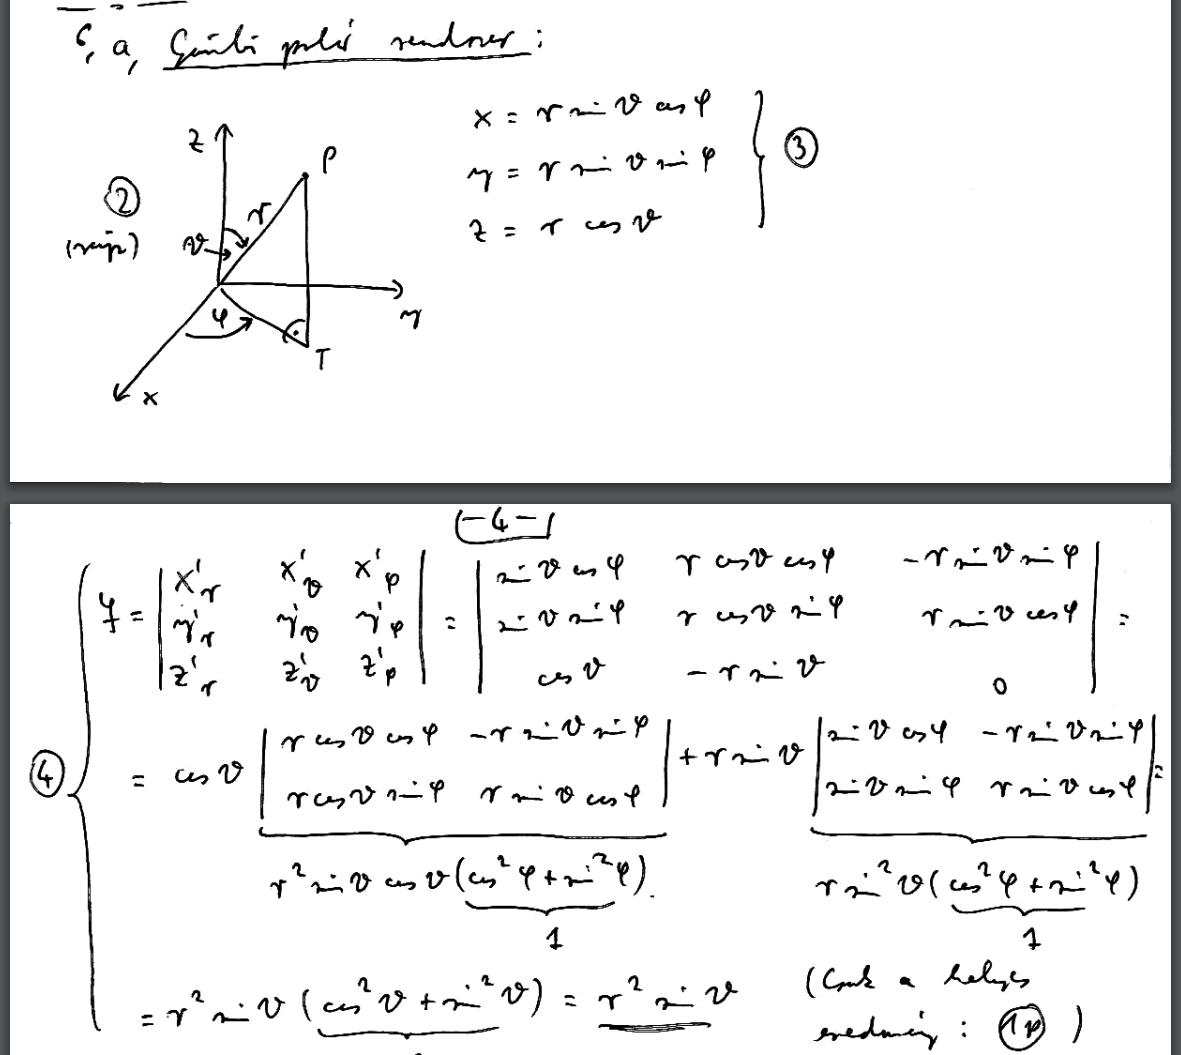 6, a, Gömbi polár rendszer:
x = r sin ϑ cos φ
y = r sin ϑ sin φ
z = r cos ϑ
③
②
(rajz)
z
P
r
ϑ
y
φ
T
x
(-4-)
④
J = | x'r x'ϑ x'φ | = | sin ϑ cos φ r cos ϑ cos φ -r sin ϑ sin φ | =
| y'r y'ϑ y'φ | | sin ϑ sin φ r cos ϑ sin φ r sin ϑ cos φ |
| z'r z'ϑ z'φ | | cos ϑ -r sin ϑ 0 |
= cos ϑ | r cos ϑ cos φ -r sin ϑ sin φ | + r sin ϑ | sin ϑ cos φ -r sin ϑ sin φ | =
| r cos ϑ sin φ r sin ϑ cos φ | | sin ϑ sin φ r sin ϑ cos φ |
r² sin ϑ cos ϑ (cos² φ + sin² φ) r sin² ϑ (cos² φ + sin² φ)
1 1
= r² sin ϑ (cos² ϑ + sin² ϑ) = r² sin ϑ (Csak a helyes
eredmény: 1p)